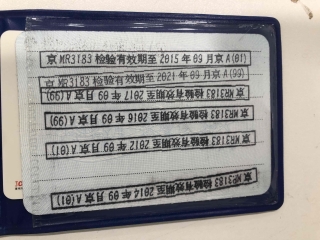 京MR3183检验有效期至2015年09月京A(01)
京MR3183检验有效期至2021年09月京A(99)
京MR3183检验有效期至2017年09月京A(99)
京MR3183检验有效期至2016年09月京A(99)
京MR3183检验有效期至2012年09月京A(01)
京MR3183检验有效期至2014年09月京A(01)